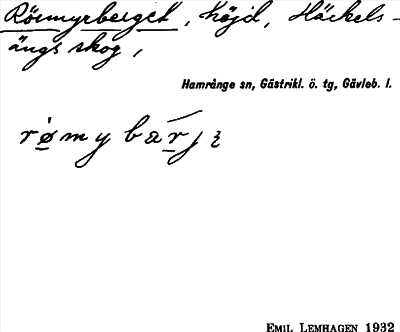 Rösmyrberget, höjd, Häckels-
ängs skog,
Hamrånge sn, Gästrikl. ö. tg, Gävleb. l.
EMIL LEMHAGEN 1932